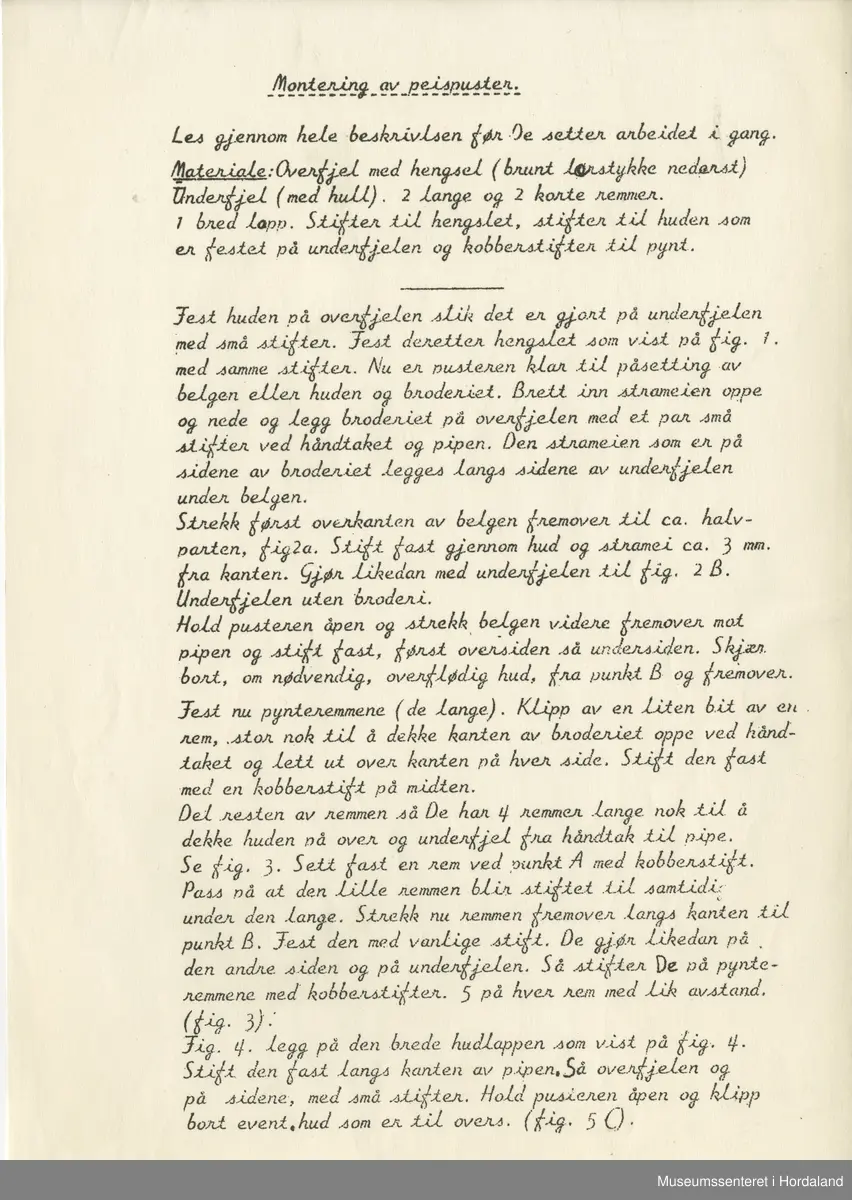 Montering av peispuster.
Les gjennom hele beskrivlsen før De setter arbeidet i gang.
Materiale: Overfjel med hengsel (brunt lørstykke nederst)
Underfjel (med hull). 2 lange og 2 korte remmer.
1 bred lapp. Stifter til hengslet, stifter til huden som
er festet på underfjelen og kobberstifter til pynt.
Fest huden på overfjelen slik det er gjort på underfjelen
med små stifter. Fest deretter hengslet som vist på fig. 1.
med samme stifter. Nu er pusteren klar til påsetting av
belgen eller huden og broderiet. Brett inn strameien oppe
og nede og legg broderiet på overfjelen med et par små
stifter ved håndtaket og pipen. Den strameien som er på
sidene av broderiet legges langs sidene av underfjelen
under belgen.
Strekk først overkanten av belgen fremover til ca. halv-
parten, fig2a. Stift fast gjennom hud og stramei ca. 3 mm.
fra kanten. Gjør likedan med underfjelen til fig. 2 B.
Underfjelen uten broderi.
Hold pusteren åpen og strekk belgen videre fremover mot
pipen og stift fast, først oversiden så undersiden. Skjær
bort, om nødvendig, overflødig hud, fra punkt B og fremover.
Fest nu pynteremmene (de lange). Klipp av en liten bit av en
rem, stor nok til å dekke kanten av broderiet oppe ved hånd-
taket og lett ut over kanten på hver side. Stift den fast
med en kobberstift på midten.
Del resten av remmen så De har 4 remmer lange nok til å
dekke huden på over og underfjel fra håndtak til pipe.
Se fig. 3. Sett fast en rem ved punkt A med kobberstift.
Pass på at den lille remmen blir stiftet til samtidi
under den lange. Strekk nu remmen fremover langs kanten til
punkt B. Fest den med vanlige stift. De gjør likedan på
den andre siden og på underfjelen. Så stifter De på pynte-
remmene med kobberstifter. 5 på hver rem med lik avstand.
(fig. 3).
Fig. 4. legg på den brede hudlappen som vist på fig. 4.
Stift den fast langs kanten av pipen. Så overfjelen og
på sidene, med små stifter. Hold pusteren åpen og klipp
bort event. hud som er til overs. (fig. 5 C).
Museumssenteret i Hordaland